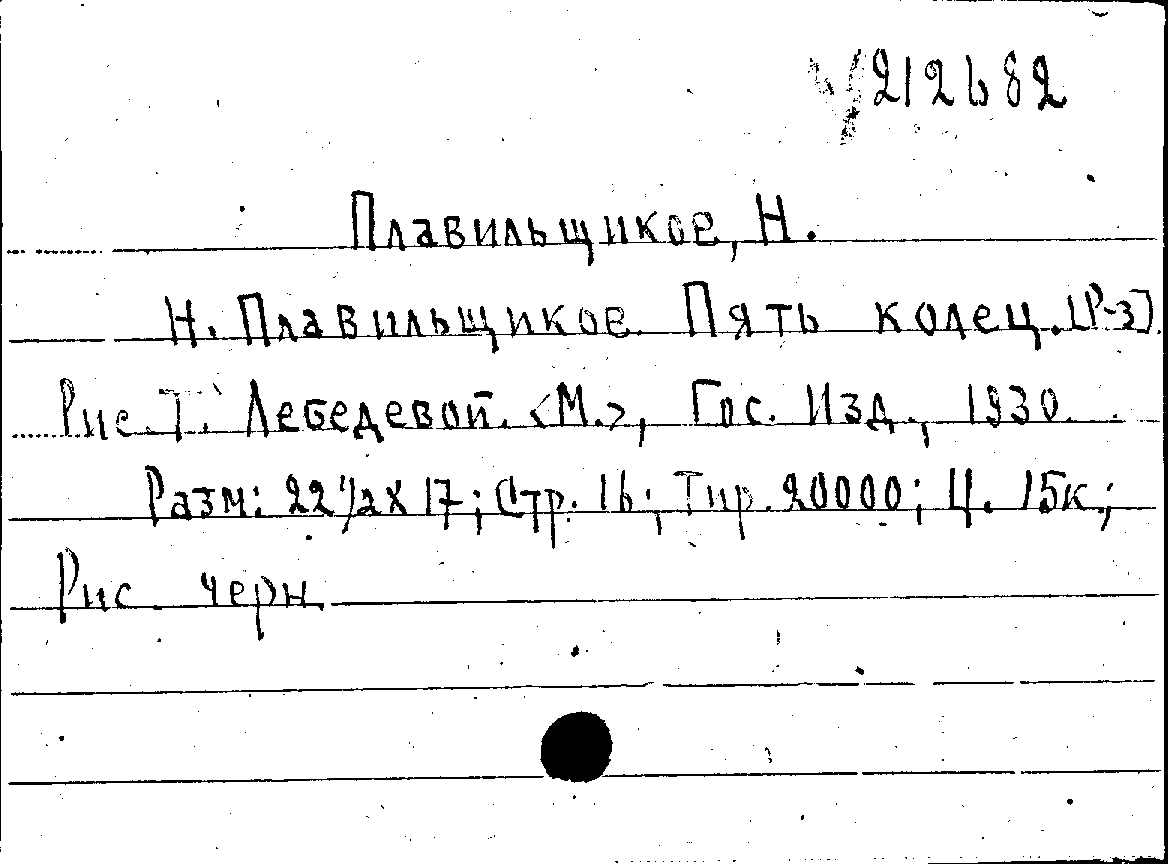 У212682
Плавильщиков, Н.
Н. Плавильщиков. Пять колец. [Р-з]
Рис. Т. Лебедевой. <М.>, Гос. Изд., 1930.
Разм: 22½x17; Стр. 16; Тир. 20000; Ц. 15к.;
Рис. черн.